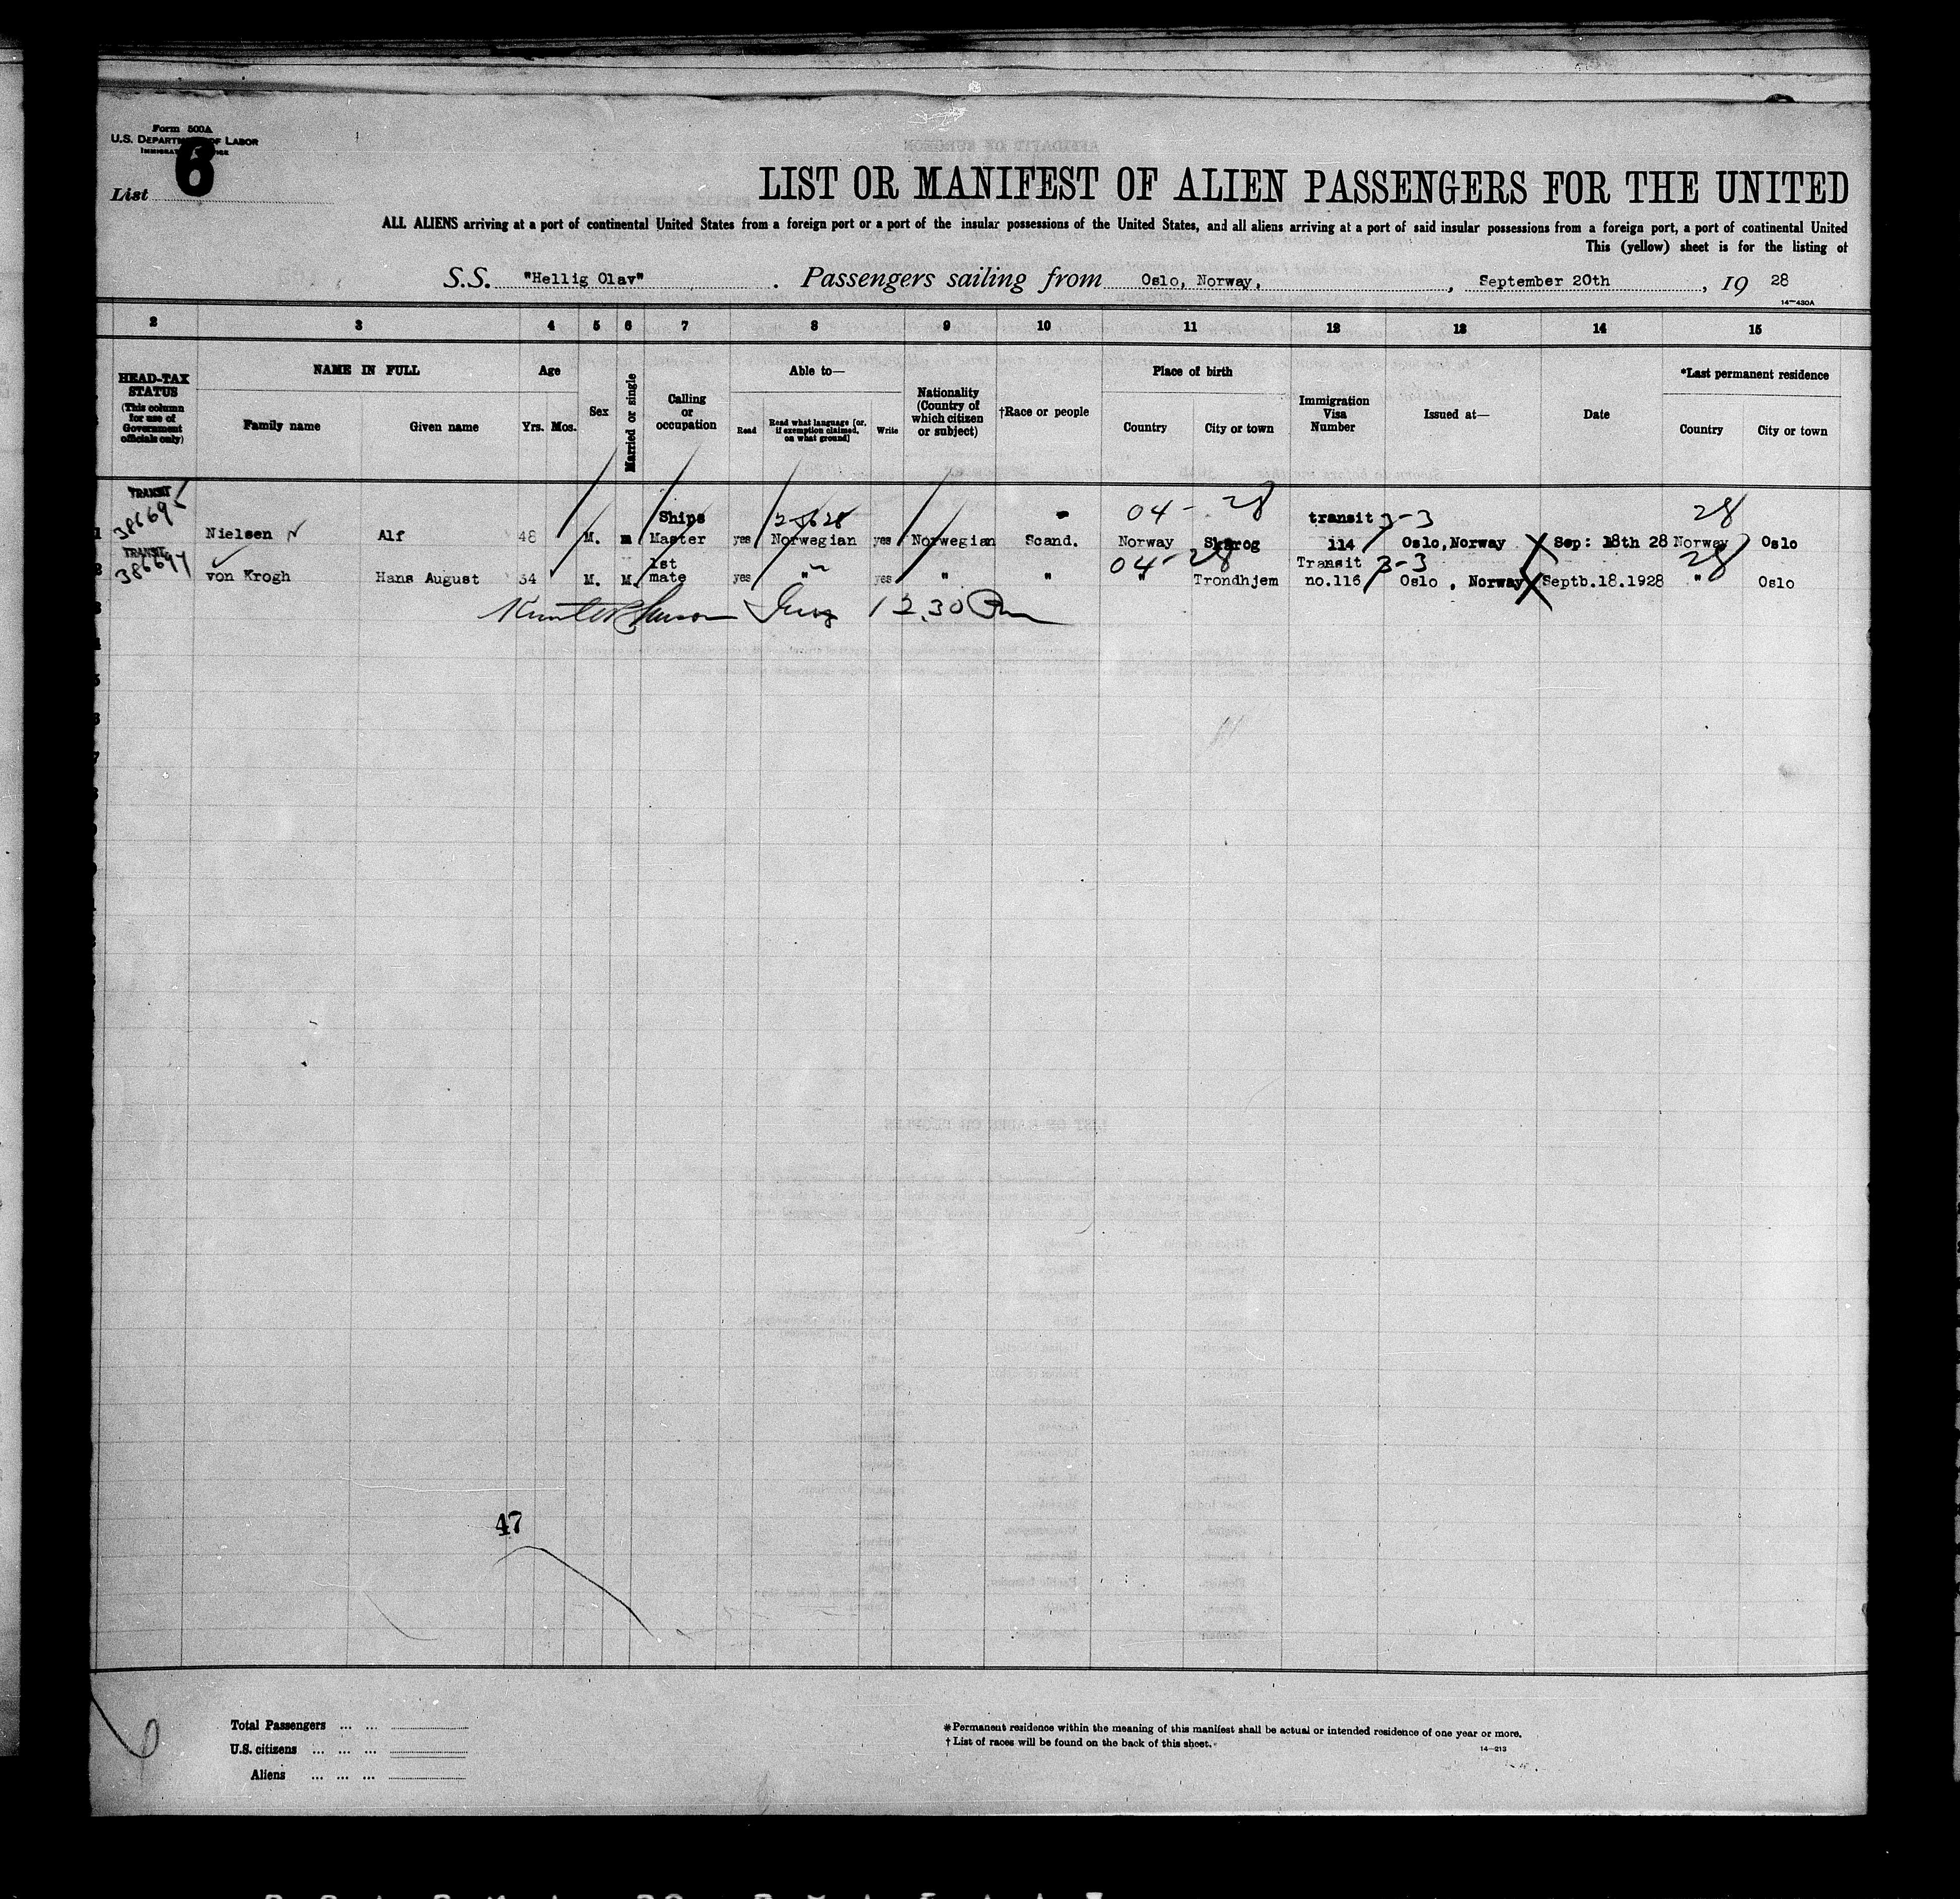 Form 500A
U.S. DEPARTMENT OF LABOR
6
List
LIST OR MANIFEST OF ALIEN PASSENGERS FOR THE UNITED
ALL ALIENS arriving at a port of continental United States from a foreign port or a port of the insular possessions of the United States, and all aliens arriving at a port of said insular possessions from a foreign port, a port of continental United
This (yellow) sheet is for the listing of
S.S. "Hellig Olav" . Passengers sailing from Oslo, Norway, , September 20th , 19 28
14-430A
2 3 4 5 6 7 8 9 10 11 12 13 14 15
HEAD-TAX STATUS (This column for use of Government officials only)
NAME IN FULL
Family name Given name
Age
Yrs. Mos.
Sex
Married or single
Calling or occupation
Able to—
Read Read what language [or, if exemption claimed, on what ground] Write
Nationality (Country of which citizen or subject)
†Race or people
Place of birth
Country City or town
Immigration Visa Number
Issued at—
Date
*Last permanent residence
Country City or town
TRANSIT Ships 25628 04 - 28 transit 3-3 28
1 38669 Nielsen Alf 48 M. m Master yes Norwegian yes Norwegian Scand. Norway 114 Oslo, Norway Sep: 18th 28 Norway Oslo
TRANSIT 1st 04-28 Transit 3-3 28
2 von Krogh Hans August 34 M. M. mate yes " yes " " " Trondhjem no.116 Oslo , Norway Septb.18.1928 " Oslo
12.30 Pm
47
6
Total Passengers ... ...
U.S. citizens ... ... ...
Aliens ... ... ...
*Permanent residence within the meaning of this manifest shall be actual or intended residence of one year or more.
† List of races will be found on the back of this sheet.
14-213